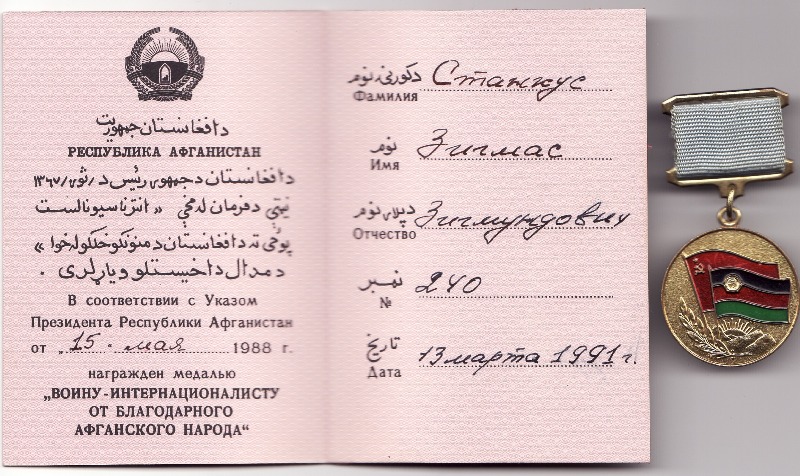 د افغانستان جمهوریت
РЕСПУБЛИКА АФГАНИСТАН
د افغانستان د جمهوری رئیس د
نیتې د فرمان له مخې «انترناسیونالست
پوځی ته د افغانستان د منونکو خلکو له خوا»
مدال د اخیستلو ویاړلری .
В соответствии с Указом
Президента Республики Афганистан
от „15. мая 1988 г.
награжден медалью
„ВОИНУ-ИНТЕРНАЦИОНАЛИСТУ
ОТ БЛАГОДАРНОГО
АФГАНСКОГО НАРОДА“
دکورنی نوم Станкус
Фамилия
نوم Зигмас
Имя
دپلار نوم Зигмундович
Отчество
نمبر 240
№
تاریخ 13 марта 1991 г.
Дата